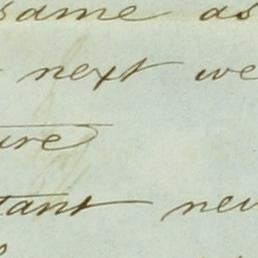 same as
next we
ure
tant new